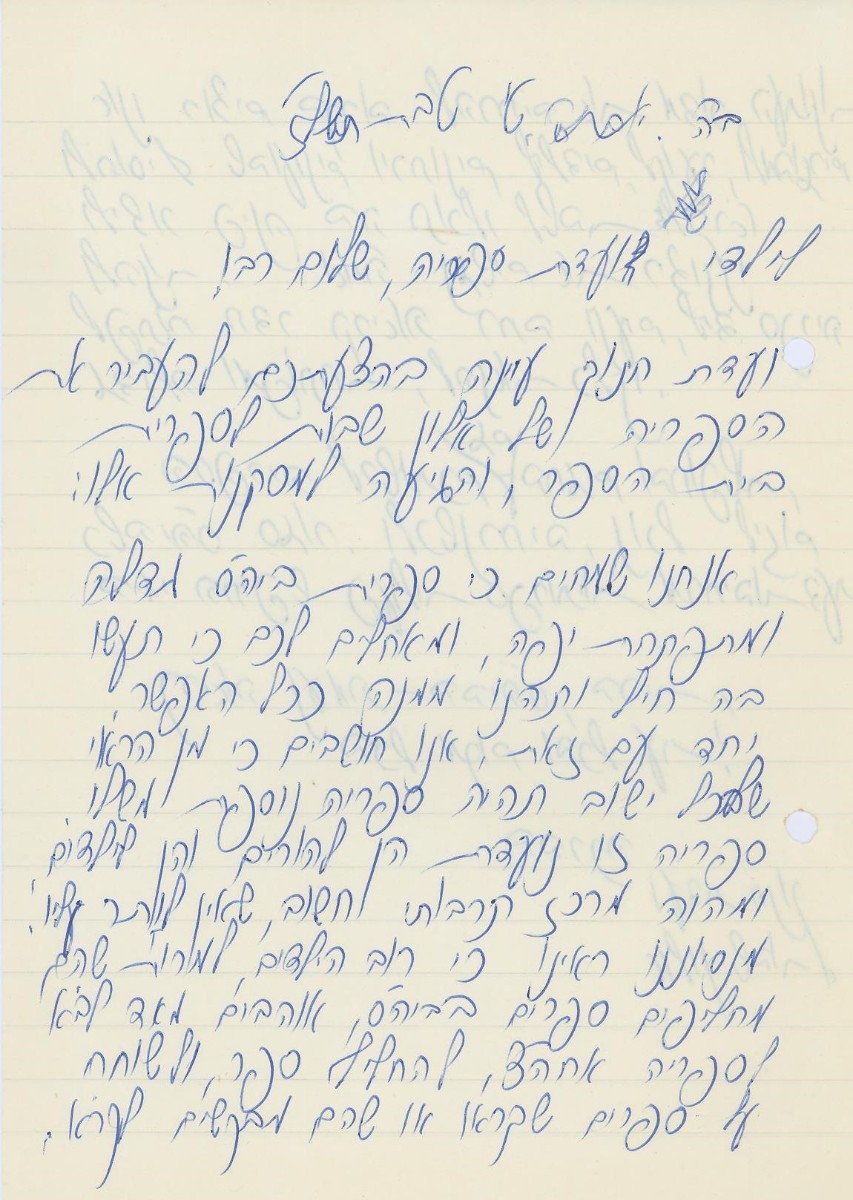 ב"ה. ט' טבת תשל"ז
לילדי ועדת ספריה, שלום רב!
ועדת חנוך עיינה בהצעתכם להעביר את
הספריה של אלון שבות לספרית
בית הספר, והגיעה למסקנות אלו:
אנחנו שמחים כי ספרית ביה"ס גדלה
ומתפתחת יפה, ומאחלים לכם כי תעשו
בה חיל ותהנו ממנה ככל האפשר.
יחד עם זאת, אנו חושבים כי מן הראוי
שלכל ישוב תהיה ספריה נוספת משלו.
ספריה זו נועדת הן להורים והן לילדים
ומהוה מרכז תרבותי וחשוב, שאין לוותר עליו.
מנסיוננו ראינו כי רוב הילדים, למרות שהם
מחליפים ספרים בביה"ס, אוהבים מאד לבוא
לספריה אחה"צ, להחליף ספר, ולשוחח
על ספרים שקראו או שהם מבקשים לקרוא.